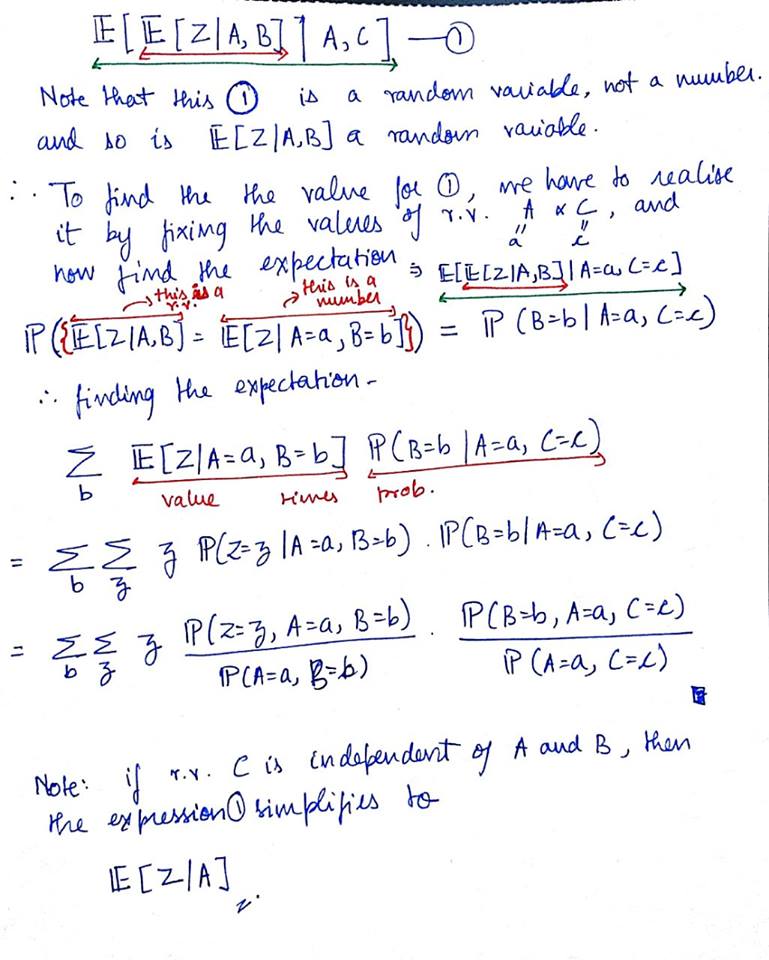 𝔼[𝔼[Z|A,B]|A,C] —①
Note that this ① is a random variable, not a number.
and so is 𝔼[Z|A,B] a random variable.
∴ To find the the value for ①, we have to realise
it by fixing the values of r.v. A & C, and
a" c"
now find the expectation ⇒ 𝔼[𝔼[Z|A,B]|A=a, C=c]
this is a r.v. this is a number
ℙ({𝔼[Z|A,B] = 𝔼[Z|A=a, B=b]}) = ℙ(B=b|A=a, C=c)
∴ finding the expectation -
∑_b 𝔼[Z|A=a, B=b] ℙ(B=b|A=a, C=c)
value times prob.
= ∑_b ∑_z z ℙ(Z=z|A=a, B=b) . ℙ(B=b|A=a, C=c)
= ∑_b ∑_z z ℙ(Z=z, A=a, B=b) / ℙ(A=a, B=b) . ℙ(B=b, A=a, C=c) / ℙ(A=a, C=c)
Note: if r.v. C is independent of A and B, then
the expression ① simplifies to
𝔼[Z|A]